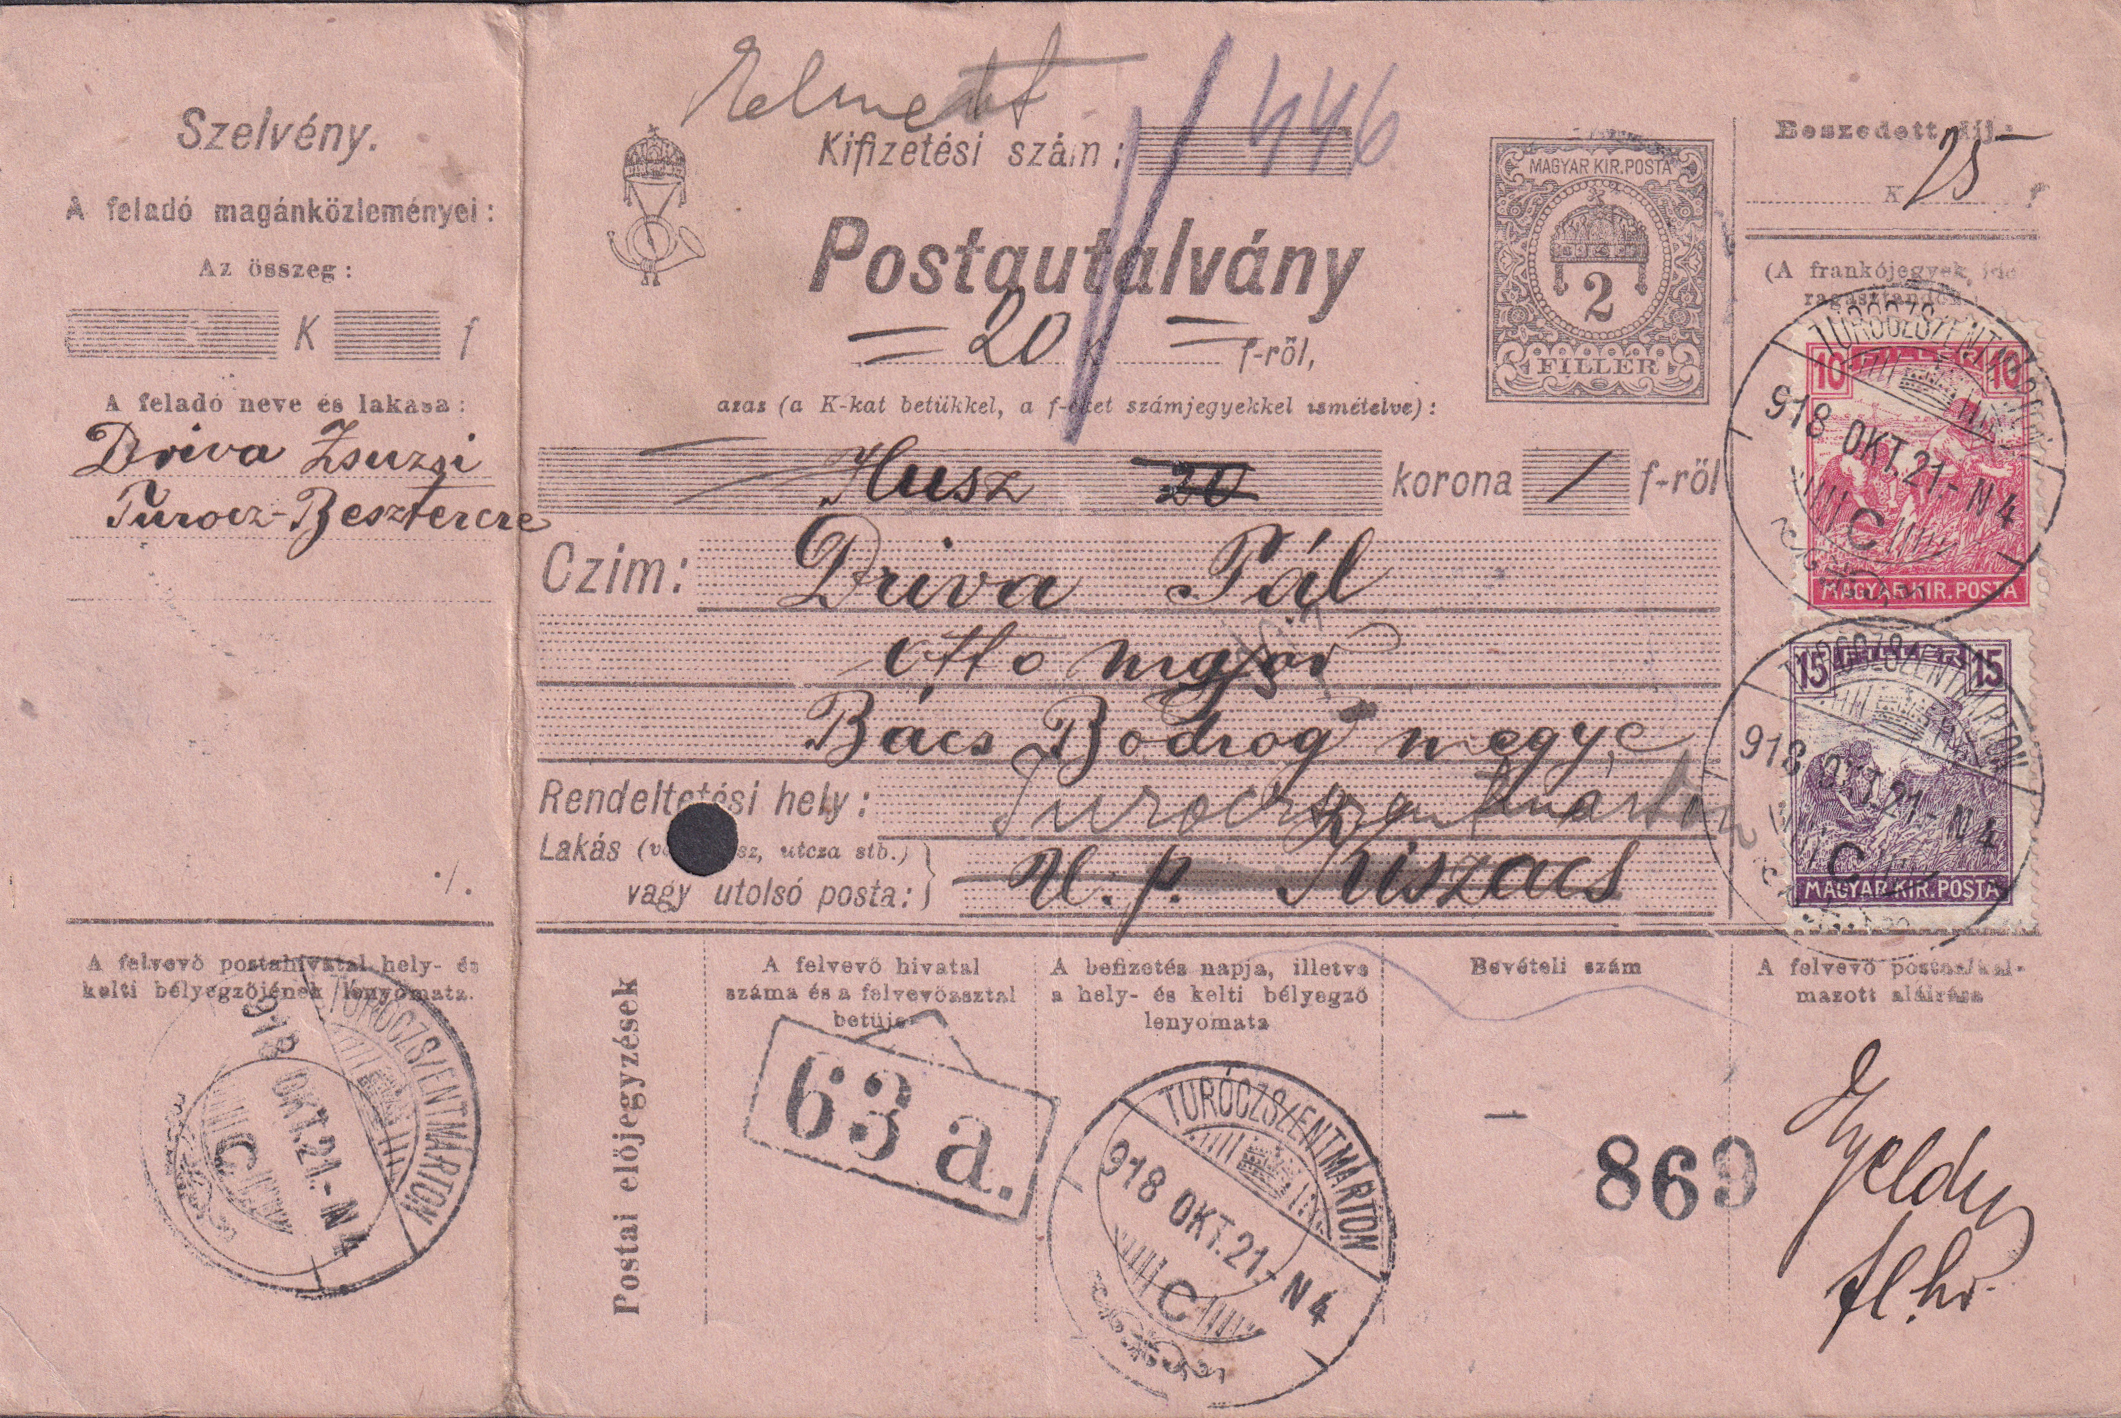 Szelvény.
A feladó magánközleményei:
Az összeg:
K f
A feladó neve és lakása:
Driva Zsuzsi
Turocz-Besztercre
A felvevő postahivatal hely- és
kelti bélyegzőjének lenyomata.
TURÓCZSZENTMÁRTON
918 OKT.21.-N4
C
Kifizetési szám:
446
Postautalvány
= 20 = f-ről,
azaz (a K-kat betükkel, a f-eket számjegyekkel ismételve):
Husz 20 korona / f-ről
Czim: Driva Pál
Otto major
Bács Bodrog megye
Rendeltetési hely: Turoczszentmárton
Lakás (vá sz, utcza stb.)
vagy utolsó posta: U. p. Kiszacs
MAGYAR KIR. POSTA
2
FILLÉR
Beszedett díj:
K 25 f
(A frankójegyek ide
ragasztandók
TURÓCZSZENTMÁRTON
918 OKT.21.-N4
C
10 FILLÉR 10
MAGYAR KIR. POSTA
TURÓCZSZENTMÁRTON
918 OKT.21.-N4
C
15 FILLÉR 15
MAGYAR KIR. POSTA
Postai előjegyzések
A felvevő hivatal
száma és a felvevőasztal
betüje
63 a.
A befizetés napja, illetve
a hely- és kelti bélyegző
lenyomata
TURÓCZSZENTMÁRTON
918 OKT.21.-N4
C
Bevételi szám
869
A felvevő postaalkal-
mazott aláirása